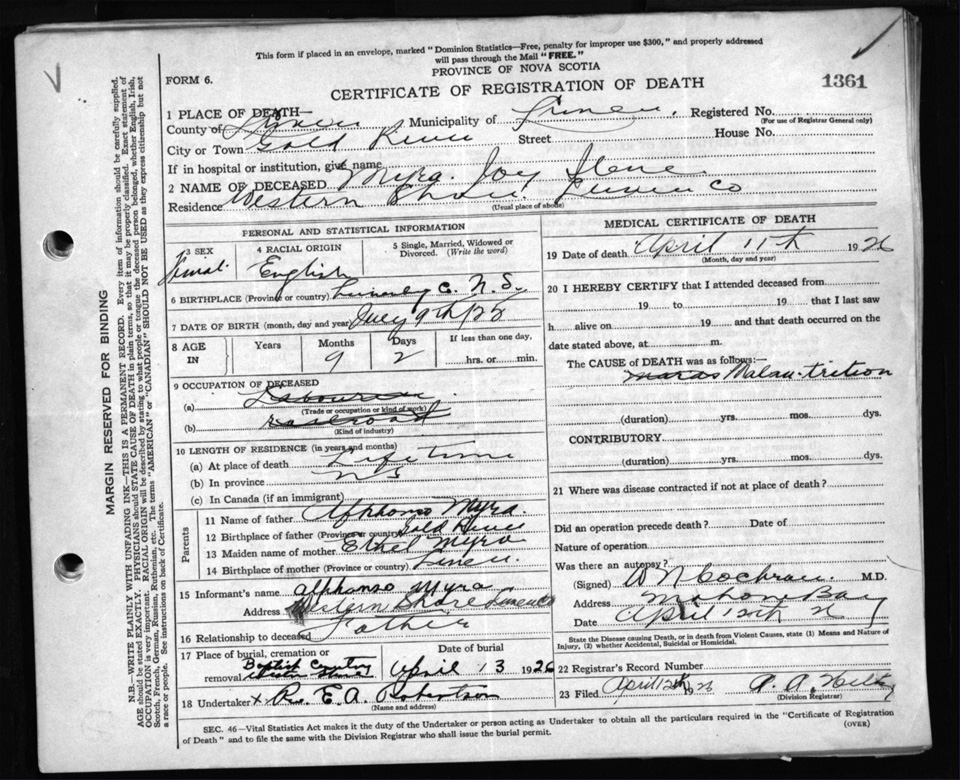 This form if placed in an envelope, marked "Dominion Statistics—Free, penalty for improper use $300," and properly addressed
will pass through the Mail "FREE."
PROVINCE OF NOVA SCOTIA
FORM 6.
CERTIFICATE OF REGISTRATION OF DEATH
1361
1 PLACE OF DEATH—
County of Municipality of Registered No.
(For use of Registrar General only)
City or Town Gold River Street House No.
If in hospital or institution, give name
2 NAME OF DECEASED Myra. Joy Ilene.
Residence Western Shore. Co
(Usual place of abode)
PERSONAL AND STATISTICAL INFORMATION
3 SEX 4 RACIAL ORIGIN 5 Single, Married, Widowed or Divorced. (Write the word)
Femal. English
6 BIRTHPLACE (Province or country) Co. N.S.
7 DATE OF BIRTH (month, day and year) July 9th/22
8 AGE IN Years Months Days If less than one day,
9 2 hrs. or min.
9 OCCUPATION OF DECEASED
(a) Labourer
(Trade or occupation or kind of work)
(b)
(Kind of industry)
10 LENGTH OF RESIDENCE (in years and months)
(a) At place of death Lifetime
(b) In province N S
(c) In Canada (if an immigrant)
Parents
11 Name of father Alphonso Myra.
12 Birthplace of father (Province or country) Gold River
13 Maiden name of mother Ethel Myra
14 Birthplace of mother (Province or country)
15 Informant's name Alphonso Myra
Address Western Shore
16 Relationship to deceased Father
17 Place of burial, cremation or removal Date of burial
Baptist April 13 1926
18 Undertaker x R. E. A. Robertson
(Name and address)
MEDICAL CERTIFICATE OF DEATH
19 Date of death April 11th 1926
(Month, day and year)
20 I HEREBY CERTIFY that I attended deceased from
19 to 19 that I last saw
h alive on 19 and that death occurred on
date stated above, at m.
The CAUSE of DEATH was as follows:—
maras Malnu-trition
(duration) yrs. mos. dys.
CONTRIBUTORY
(duration) yrs. mos. dys.
21 Where was disease contracted if not at place of death?
Did an operation precede death? Date of
Nature of operation
Was there an autopsy?
(Signed) W N Cochran. M.D.
Address Mahone Bay
Date April 12th 26
State the Disease causing Death, or in death from Violent Causes, state (1) Means and Nature of
Injury, (2) whether Accidental, Suicidal or Homicidal.
22 Registrar's Record Number
23 Filed April 12th 1926
(Division Registrar)
SEC. 46—Vital Statistics Act makes it the duty of the Undertaker or person acting as Undertaker to obtain all the particulars required in the "Certificate of Registration
of Death" and to file the same with the Division Registrar who shall issue the burial permit. (OVER)
MARGIN RESERVED FOR BINDING
N.B.—WRITE PLAINLY WITH UNFADING INK—THIS IS A PERMANENT RECORD. Every item of information should be carefully supplied.
AGE should be stated EXACTLY. PHYSICIANS should STATE CAUSE OF DEATH in plain terms, so that it may be properly classified. Exact statement of
OCCUPATION is very important. RACIAL ORIGIN will be described by stating to what people or tongue the deceased person belonged, whether English, Irish,
Scotch, French, German, Russian, Ruthenian, etc. The terms "AMERICAN" or "CANADIAN" SHOULD NOT BE USED as they express citizenship but not
a race or people. See instructions on back of Certificate.